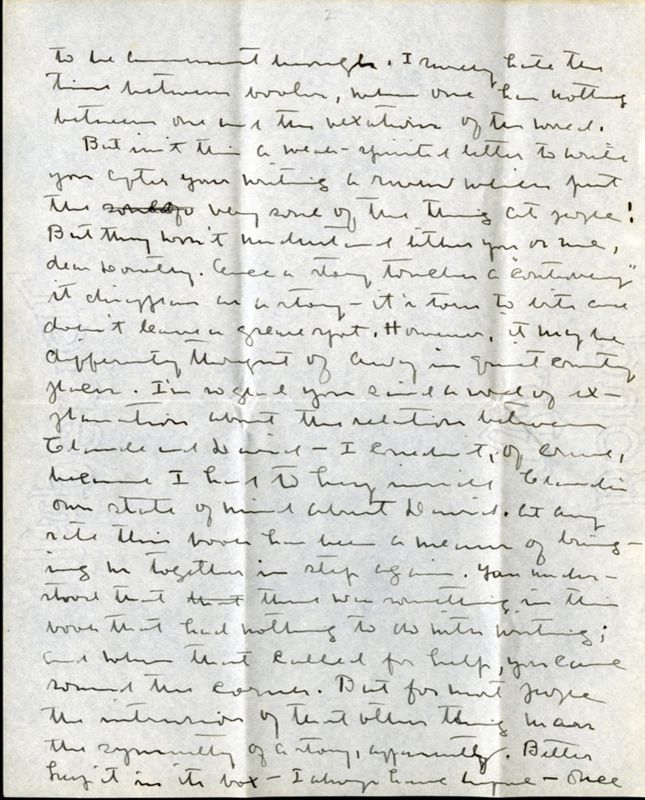 2
to be announced through. I surely hate the
time between books, when one has nothing
between one and the vexations of the world.
But isn't this a mean-spirited letter to write
you after your writing a review which put
the soul of very soul of the thing at people!
But they won't understand either you or me,
dear Dorothy. Once a story touches a "controversy"
it disappears as a story - it's torn to bits and
doesn't leave a grease spot. However, it may be
differently thought of away in quiet country
places. I'm so glad you said a word of ex-
planation about the relation between
Claude and David - I couldn't, of course,
because I had to keep inside Claude's
own state of mind about David. At any
rate this book has been a means of bring-
ing us together in step again. You under-
stood that that there was something in this
book that had nothing to do with writing;
and when that called for help, you came
round the corner. But for most people
the intrusion of that other thing mars
the symmetry of a story, apparently. Better
keep it in its box - I always have before - once